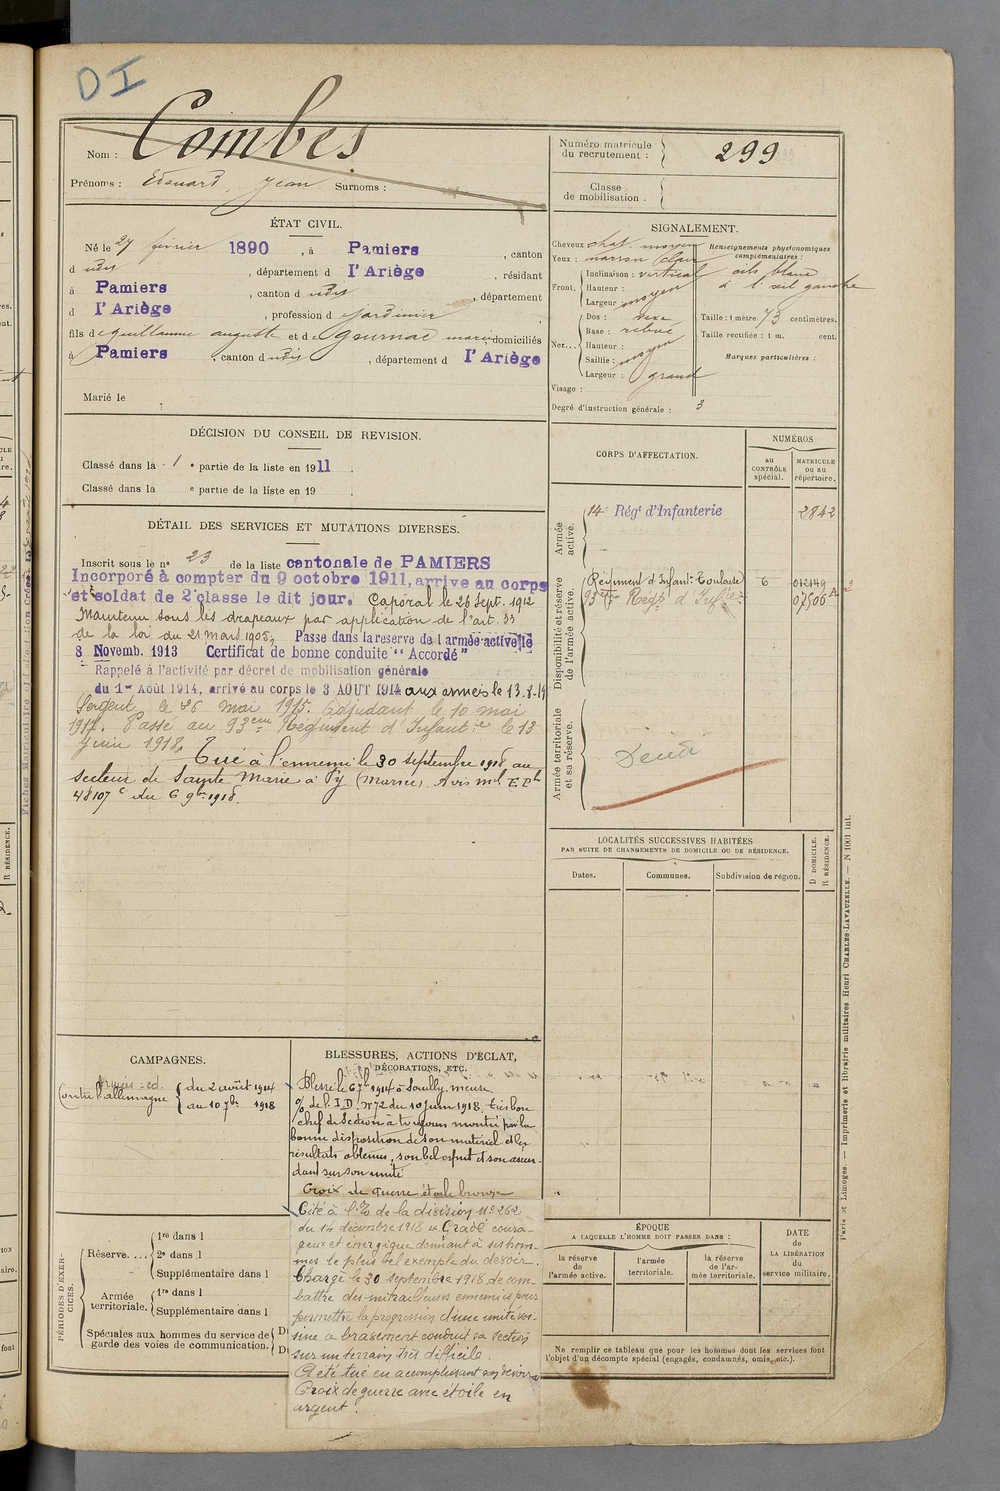 DI
Nom : Combes
Prénoms : Edouard Jean Surnoms :
Numéro matricule du recrutement : 299
Classe de mobilisation :
ÉTAT CIVIL.
Né le 27 février 1890, à Pamiers, canton
d udit, département d l'Ariège, résidant
à Pamiers, canton d udit, département
d l'Ariège, profession d jardinier
fils de guillaume auguste et de gournac marie domiciliés
à Pamiers, canton d udit, département d l'Ariège
Marié le
SIGNALEMENT.
Cheveux chat. moyen
Yeux : marron clair
Front. Inclinaison : vertical
Hauteur :
Largeur moyen
Nez... Dos : vexe
Base : relevé
Hauteur :
Saillie : moyen
Largeur : grand
Visage :
Degré d'instruction générale : 3
Renseignements physionomiques complémentaires :
cils blancs
à l'œil gauche
Taille : 1 mètre 73 centimètres.
Taille rectifiée : 1 m. cent.
Marques particulières :
DÉCISION DU CONSEIL DE REVISION.
Classé dans la 1e partie de la liste en 1911
Classé dans la e partie de la liste en 19
DÉTAIL DES SERVICES ET MUTATIONS DIVERSES.
Inscrit sous le n° 23 de la liste cantonale de PAMIERS
Incorporé à compter du 9 octobre 1911, arrive au corps
et soldat de 2e classe le dit jour. Caporal le 26 Sept. 1912
Maintenu sous les drapeaux par application de l'art. 33
de la loi du 21 Mars 1905. Passe dans la reserve de l armée active le
8 Novemb. 1913 Certificat de bonne conduite "Accordé"
Rappelé à l'activité par décret de mobilisation générale
du 1er Août 1914, arrivé au corps le 3 AOUT 1914 aux armées le 13.8.14
Sergent le 26 mai 1915. Adjudant le 10 mai
1917. Passé au 93eme Régiment d'Infantie le 13
Juin 1918.
Tué à l'ennemi le 30 septembre 1918 au
secteur de Sainte Marie à Py (Marne) Avis mel
48107 C du 6 9bre 1918.
CORPS D'AFFECTATION.
NUMÉROS
au CONTRÔLE spécial.
MATRICULE ou au répertoire.
Armée active.
14e Régt d'Infanterie 2842
Disponibilité et réserve de l'armée active.
Régiment d'Infant. Toulouse 6 012149
93e Régt d'Infie 07506
Armée territoriale et sa réserve.
Décédé
LOCALITÉS SUCCESSIVES HABITÉES
PAR SUITE DE CHANGEMENTS DE DOMICILE OU DE RÉSIDENCE.
Dates. Communes. Subdivision de région.
D DOMICILE.
R RÉSIDENCE.
CAMPAGNES.
Contre l'allemagne du 2 août 1914
au 10 7bre 1918
BLESSURES, ACTIONS D'ÉCLAT,
DÉCORATIONS, ETC.
Blessé le 6 7bre 1914 à Souilly meuse
% de l'I.D. N°72 du 10 juin 1918. très bon
chef de section a toujours montré par la
bonne disposition de son matériel et les
résultats obtenus, son bel esprit et son ascen-
dant sur son unité
Croix de guerre étoile bronze
Cité à l'% de la division N° 262
du 14 décembre 1918 "Gradé coura-
geux et énergique donnant à ses hom-
mes le plus bel exemple du devoir.
Chargé le 30 septembre 1918 de com-
battre des mitrailleuses ennemies pour
permettre la progression d'une unité voi-
sine a bravement conduit sa section
sur un terrain très difficile.
A été tué en accomplissant son devoir"
Croix de guerre avec étoile en
argent.
PÉRIODES D'EXERCICES.
Réserve.... 1re dans l
2e dans l
Supplémentaire dans l
Armée territoriale. 1re dans l
Supplémentaire dans l
Spéciales aux hommes du service de garde des voies de communication.
ÉPOQUE
A LAQUELLE L'HOMME DOIT PASSER DANS :
la réserve de l'armée active.
l'armée territoriale.
la réserve de l'armée territoriale.
DATE de LA LIBÉRATION du service militaire.
Ne remplir ce tableau que pour les hommes dont les services font
l'objet d'un décompte spécial (engagés, condamnés, omis, etc.).
Paris et Limoges. — Imprimerie et librairie militaires Henri CHARLES-LAVAUZELLE. — N 1001 int.